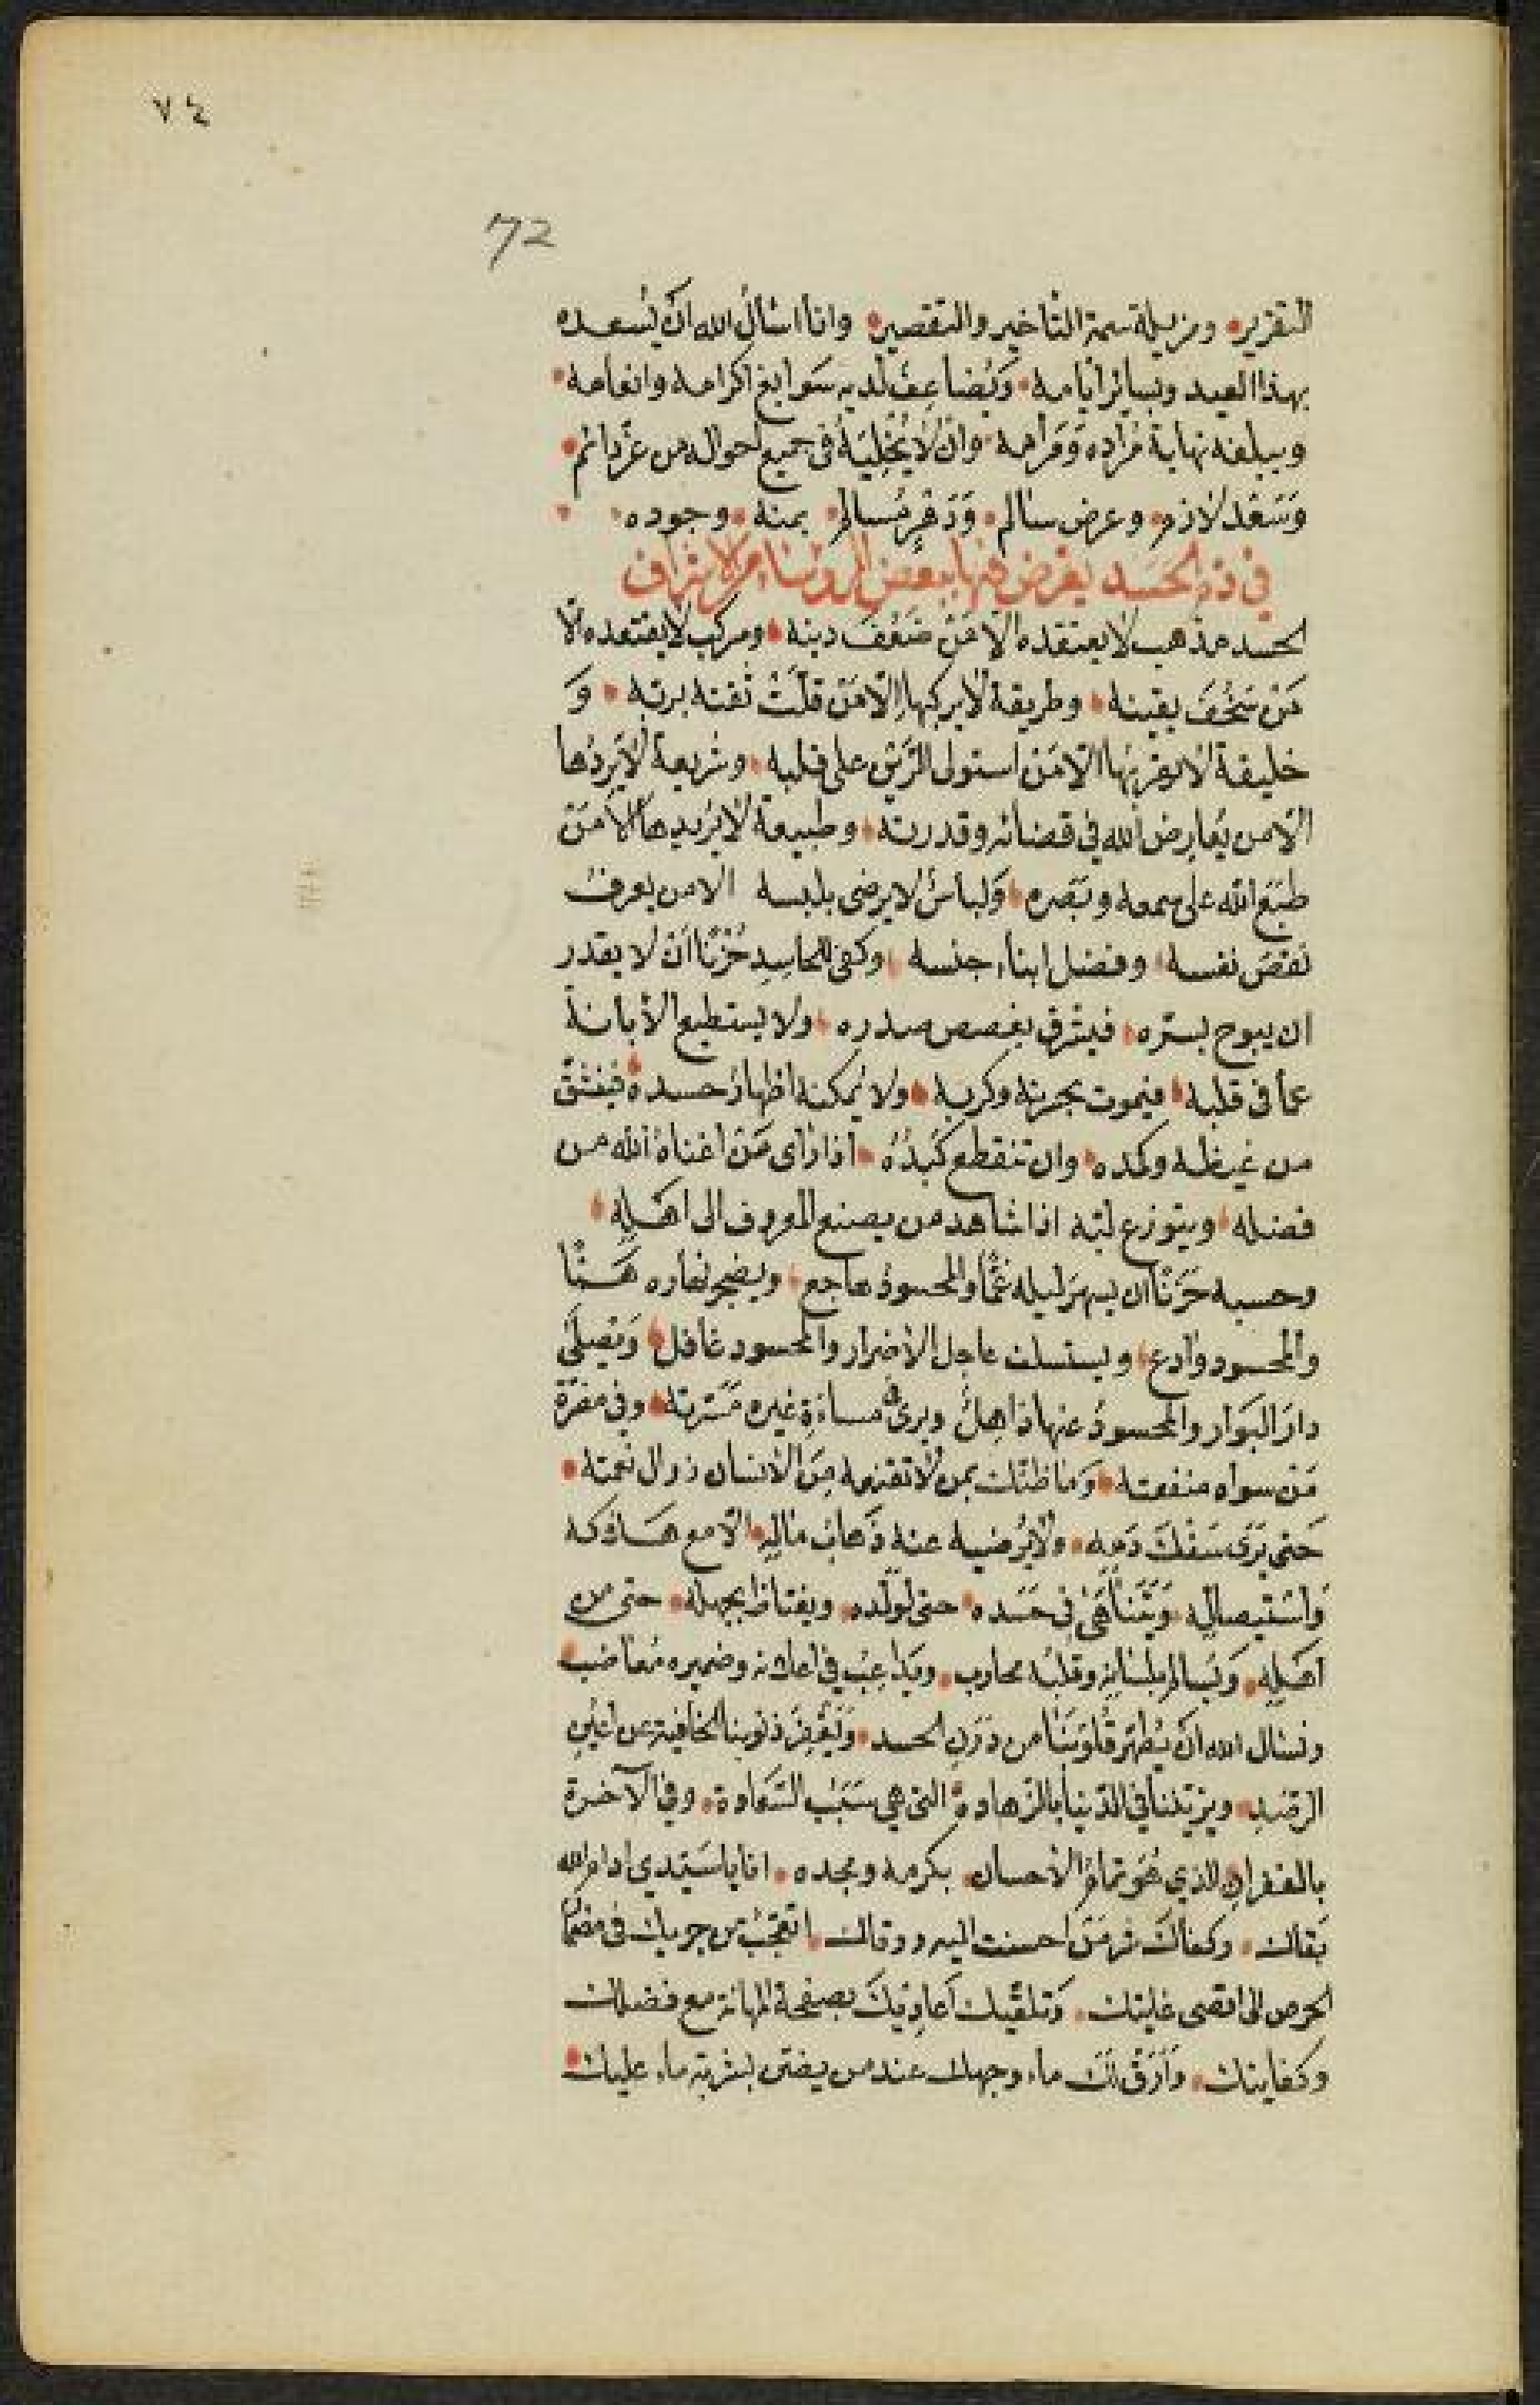 ٧٤
72
التقرير ومزيلة سمة التأخير والتقصير وانا اسأل الله ان يسعده
بهذا العيد وبسائر ايامه ويضاعف لديه سوابغ اكرامه وانعامه
ويبلغه نهاية مراده ومرامه وان لا يخليه فى جميع احواله من عز دائم
وسعد لازم وعرض سالم ودهر مسالم بمنه وجوده
فى ذم الحسد يعرض فيها ببعض الرؤساء من الاشراف
الحسد مذهب لا يعتقده الا من ضعف دينه ومركب لا يقتعده الا
من سخف يقينه وطريقة لا يركبها الا من قلت ثقته بربه و
خليقة لا يعرفها الا من استولى الرين على قلبه وشريعة لا يردها
الا من يعارض الله فى قضائه وقدرته وطبيعة لا يريدها الا من
طبع الله على سمعه وبصره ولباس لا يرضى بلبسه الا من يعرف
نقص نفسه وفضل ابناء جنسه وكفى للحاسد حزنا ان لا يقدر
ان يبوح بسره فيشرق بغصص صدره ولا يستطيع الابانة
عما فى قلبه فيموت بحزنه وكربه ولا يمكنه اظهار حسده فينشق
من غيظه وكمده وان تنقطع كبده اذا رأى من اغناه الله من
فضله ويتوزع لبه اذا شاهد من يصنع المعروف الى اهله
وحسبه حزنا ان يسهر ليله غما والمحسود هاجع ويضجر نهاره هما
والمحسود وادع ويستسلف عاجل الاضرار والمحسود غافل ويصلى
دار البوار والمحسود عنها ذاهل ويرى فى مساءة غيره مسرته وفى مضرة
من سواه منفعته وما ظنك بمن لا تقنعه من الانسان زوال نعمته
حتى يرى سفك دمه ولا يرضيه عنه ذهاب ماله الا مع هلاكه
واستيصاله ويتناهى فى حسده حتى لولده ويغتاظ بجهله حتى من
اهله ويسالم بلسانه وقلبه محارب ويداعب فى اعلانه وضميره مغاضب
ونسال الله ان يطهر قلوبنا من درن الحسد ويغفر ذنوبنا الخافية عن اعين
الرصد ويزيدنا فى الدنيا بالزهادة التى هى سبب السعادة وفى الآخرة
بالغفران الذي هو تمام الاحسان بكرمه ومجده انا يا سيدي ادام الله
بقاك وكفاك شر من احسنت اليه ووقاك اتعجب من جريك فى مضمار
الحرص الى اقصى غايتك وتلقيك اعاديك بصفحة المهانة مع فضلك
وكفايتك وارق لك ماء وجهك عند من يضن بشربة ماء عليك